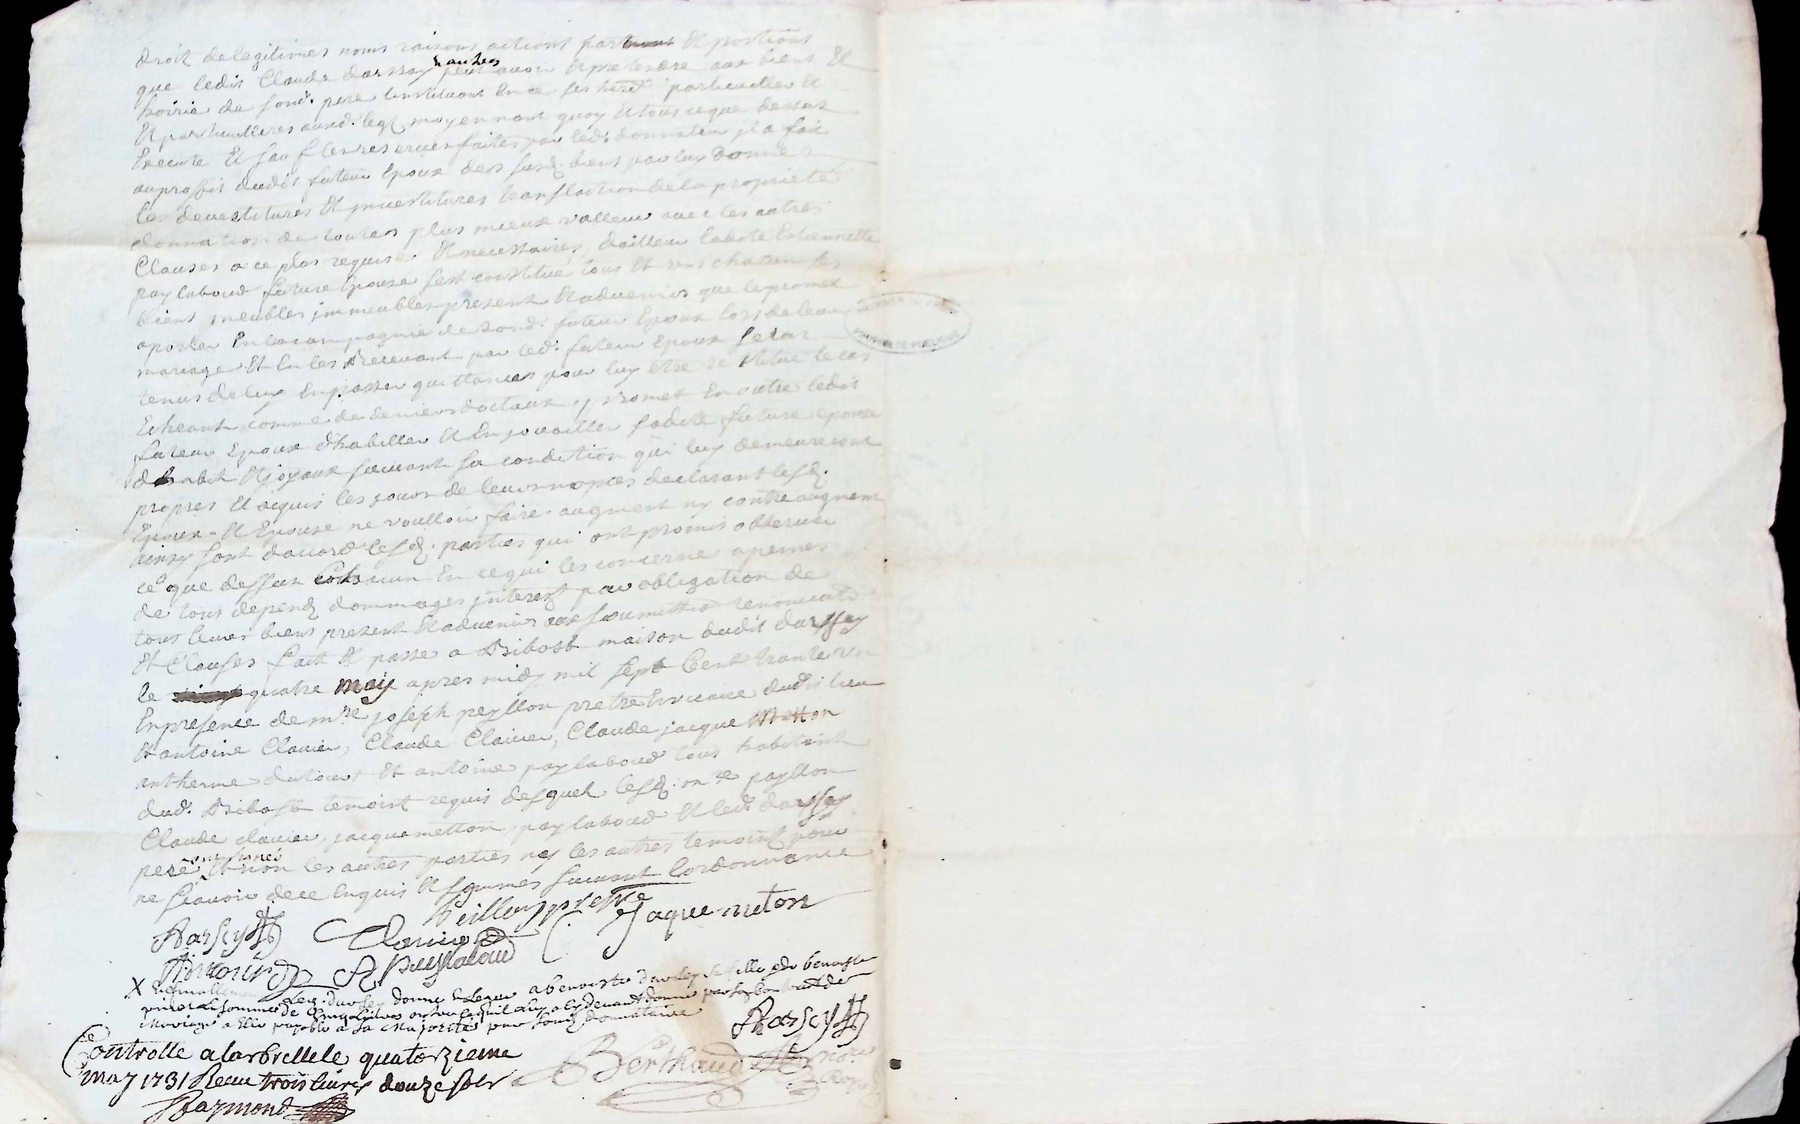 droit de legitimes noms raisons actions part et portions
que ledit Claude darssay peut avoir et pretendre aux biens et
hoirie de sond. pere linstituant en ce ses herit. particuillier et
et particullieres aud. leg moyennant quoy et tous ce que dessus
execute et sauf les reserves faites par led. donnateur il a fait
au proffit dudit futeur epoux des susd. biens par luy donnes
les devestitures et investitures translaction de la propriete
donnation de toutes plus mieux valleur avec les autres
Clauses a ce plus requise et necessaires, dailleur ladite Estiennette
paylaboud future epouse sest constitué tous et uns chacun ses
biens meubles immeubles present et advenir que le promet
aporter en la compagnie de sond. futeur epoux lors de leur
mariage et en les recevant par led. futeur epoux sera
tenus de luy en passer quittances pour luy etre restitué le cas
Echeant comme de deniers doctaux, promet en outre ledit
futeur epoux dhabiller et enjouailler sadite future epouse
dhabit et joyaux suivant sa condition qui luy demeureront
propres et acquis les jours de leurs nopces declarant lesd.
Epoux et Epouse ne voulloir faire augment ny contre augment
ainsy sont daccord lesd. parties qui ont promis observer
ce que dessus Chacun en ce qui les concerne apeines
de tous depend dommages interest par obligation de
tous leurs biens present et advenir soumettre renonciat
et Clauses fait et passé a Bibost maison dudit darssay
le quatre may apres midy mil sept Cent trante un
En presence de mre joseph peyllon pretre vicaire dudit lieu
et antoine Clavier, Claude Clavier, Claude jacque Metton
antherme dutour et antoine paylaboud tous habitant
dud. Bibost temoins requis desquels lesd. mre payllon
Claude clavier, jacquemetton, paylaboud et led. darssay
pere ont signes et non les autres parties ny les autres temoins pour
ne scavoir de ce enquis et sommes suivant lordonnance
Peillon pretre
Darsey Clavier C. Jaque meton
A Peylaboud
X led. darsey donne et legue a benoiste darsey sa fille et de benoiste
la somme de
Mariage a Elle payable a sa majorité par sond. donataire
Darsey
Controlle a larbrelle le quatorzieme
may 1731 Receu trois livres douze sols
Berthaud
Raymond